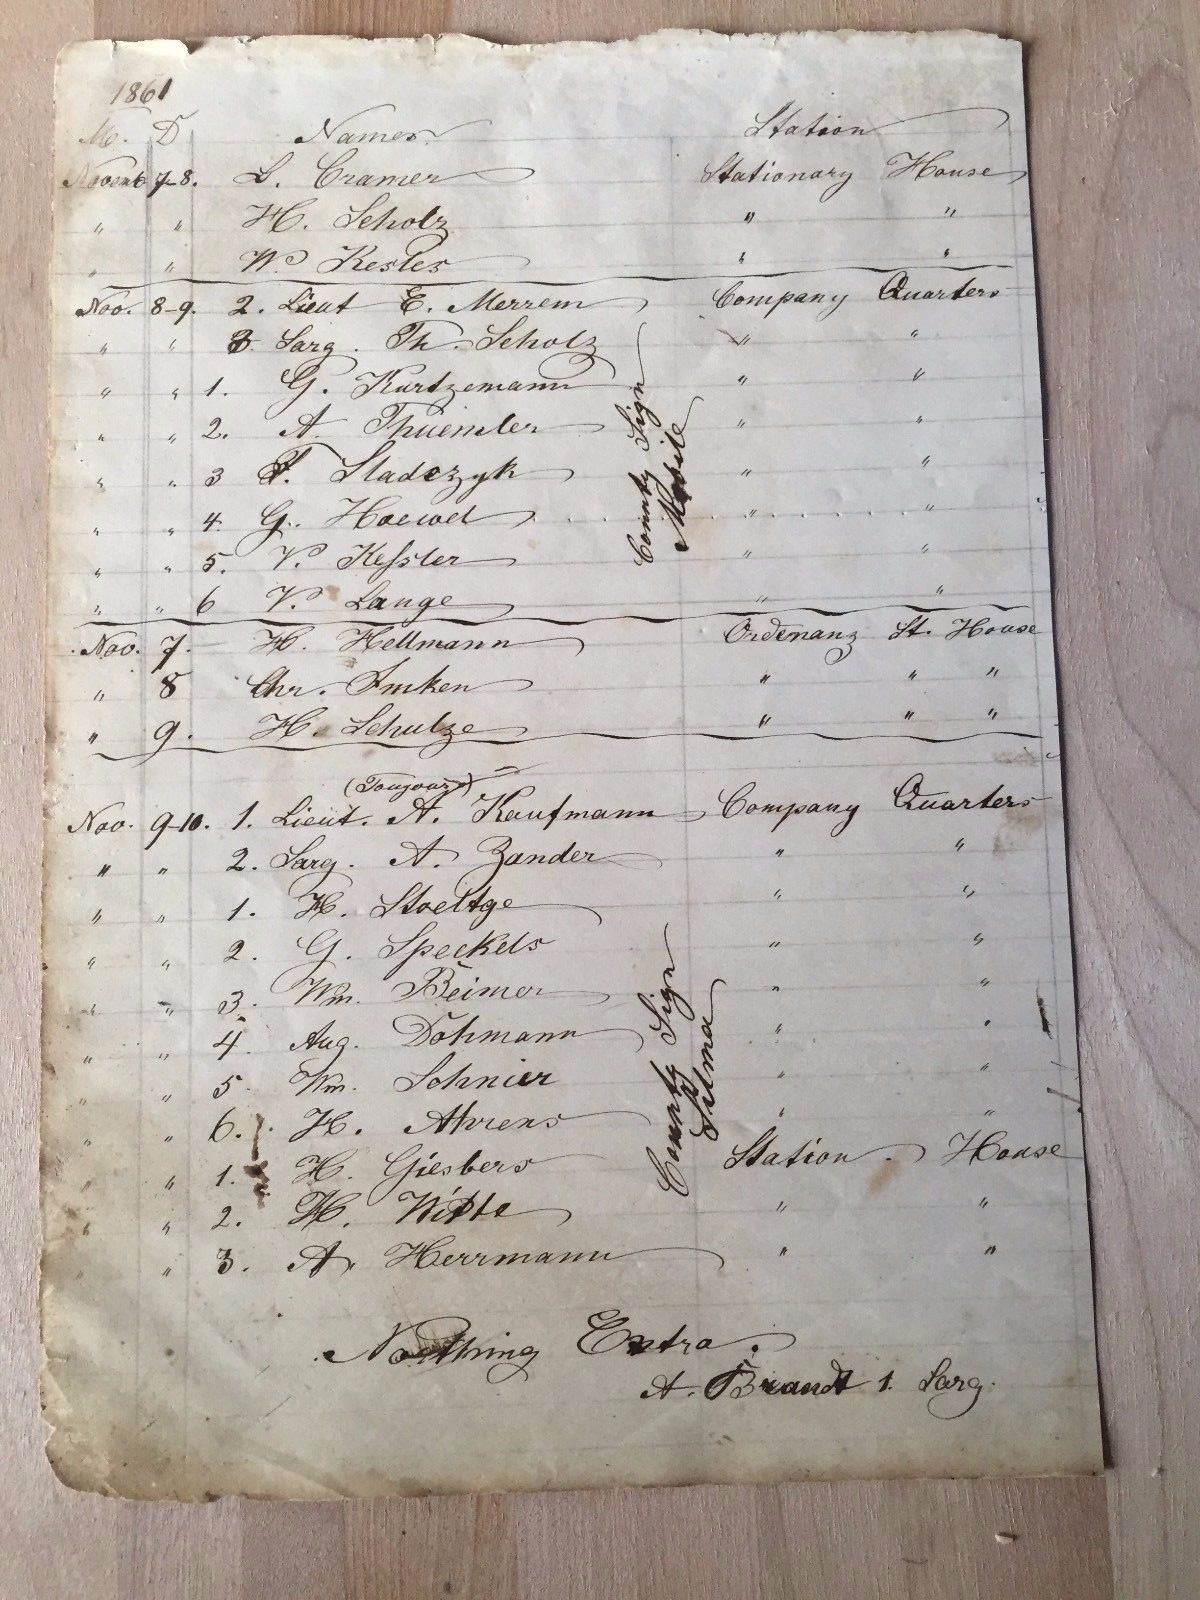 1861
M. D Names. Station
Novemb 7-8. L. Cramer Stationary House
" " H. Scholz " "
" " W. Kesler " "
Nov. 8-9. 2. Lieut E. Merrem Company Quarters
" " 3. Sarg. Th. Scholz " "
" " 1. G. Kurtzemann " "
" " 2. A. Thuemler " "
" " 3 F. Stadczyk " "
" " 4. G. Hoewel " "
" " 5. V. Keſsler " "
" " 6 V. Lange " "
County Sign
Mobile
Nov. 7. H. Hellmann Ordenanz St. House
" 8 Chr. Imken " " "
" 9. H. Schulze " " "
(Toujours)
Nov. 9-10. 1. Lieut. A. Kaufmann Company Quarters
" " 2. Sarg. A. Zander " "
" " 1. H. Stoeltge " "
" " 2. G. Speckels " "
" " 3. Wm. Beimer " "
" " 4. Aug. Dohmann " "
" " 5. Wm. Schnier " "
" " 6. H. Ahrens " "
" " 1. H. Giesbers Station House
" " 2. H. Witte " "
" 3. A. Herrmann " "
County Sign
Selma
Noothing Extra.
A. Brandt 1. Sarg.